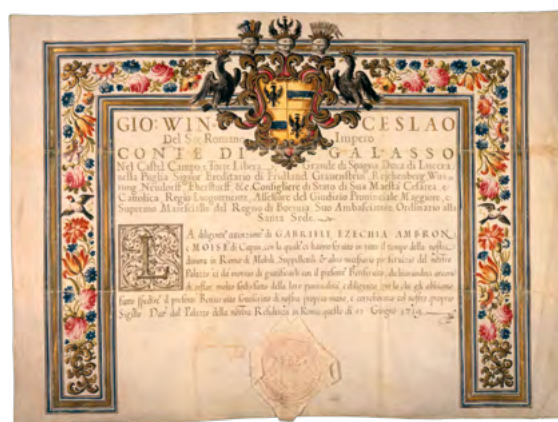 GIO: WINCESLAO
Del S. R. Romano Impero
CONTE DI GALASSO
Nel Castel Campo e Torre Libera, Grande di Spagna, Duca di Lucera
nella Puglia Signor Ereditario di Fridland Gravenstein, Reichenberg
Neudorff Eberstorff &c. Consigliere di Stato di Sua Maestà Cesarea, e
Cattolica, Regio Luogotenente, Assessore del Giudizio Provinciale Maggiore, e
Supremo Maresciallo del Regno di Boemia Suo Ambasciatore Ordinario alla
Santa Sede.
LA diligente attenzione di GABRIELE EZECHIA AMBRON,
e MOISE di Capua, con la quale ci hanno servito in tutto il tempo della nostra
dimora in Roma di Mobili, Suppellettili, & altro necessario per servizio del nostro
Palazzo ci dà motivo di giustificarli con il presente Benservito, dichiarandoci ancora
di restar molto sodisfatti della loro puntualità, e diligenza,
fatto spedire il presente Benservito sottoscritto di nostra propria mano, e corroborato col nostro proprio
Sigillo Dat. dal Palazzo della nostra Residenza in Roma questo di Giugno